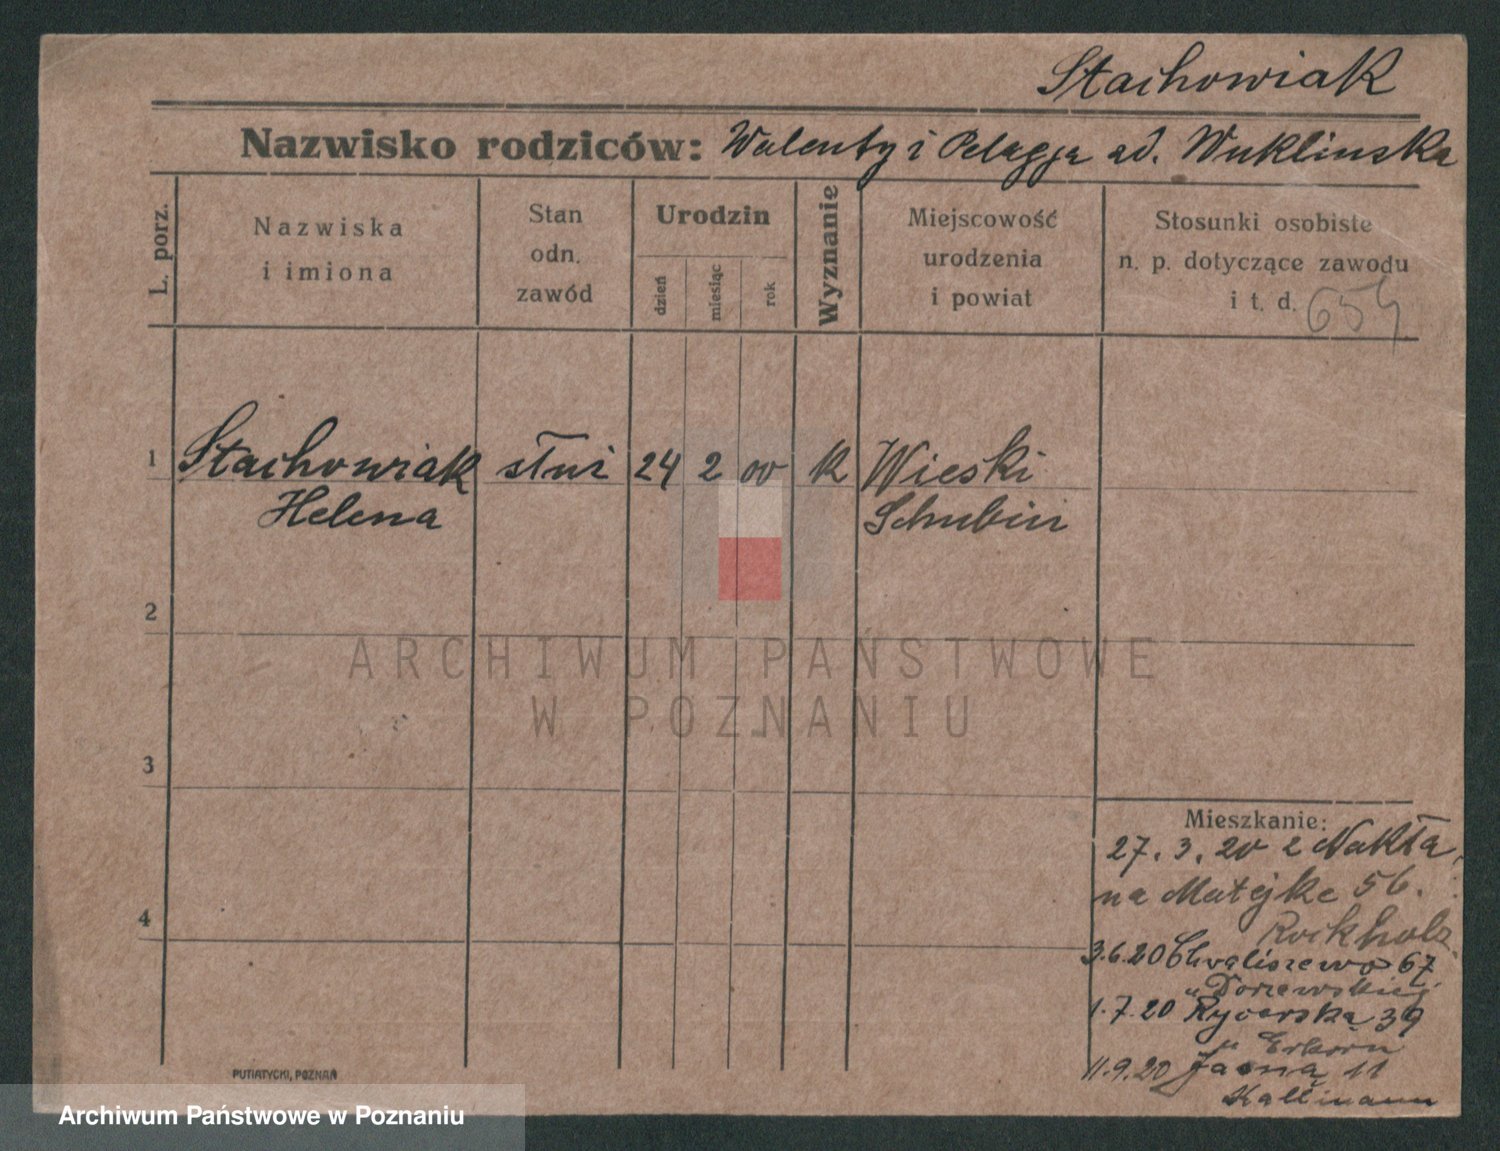 Stachowiak
Nazwisko rodziców: Walenty i Pelagja
L. porz.
Nazwiska
i imiona
Stan
odn.
zawód
Urodzin
dzień
miesiąc
rok
Wyznanie
Miejscowość
urodzenia
i powiat
Stosunki osobiste
n. p. dotyczące zawodu
i t. d.
1 Stachowiak 24 2 00 K Wieski
Helena Schubin
2
3
4
Mieszkanie:
27. 3. 20 z Nakła
na Matejke 56.
3.6.20 Chwaliszewo 67
1.7.20 Rycerska 39
11.9.20 Jasna 11
Kallmann
PUTIATYCKI, POZNAŃ
ARCHIWUM PAŃSTWOWE
W POZNANIU
Archiwum Państwowe w Poznaniu